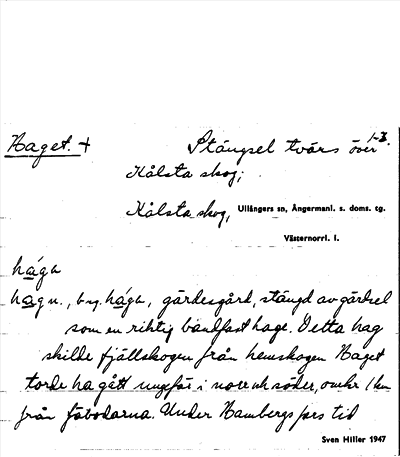 Haget. + Stängsel tvärs över 1-3.
Kålsta skog;
Kålsta skog, Ullångers sn, Ångermanl. s. doms. tg.
Västernorrl. l.
hága
hag n., byg. hága, gärdesgård, stängd av gärdsel
som en riktig bandfast hage. Detta hag
skilde fjällskogen från hemskogen Haget
torde ha gått ungefär i norr och söder, omkr 1 km
från fäbodarna. Under Hambergs fars tid
Sven Hiller 1947